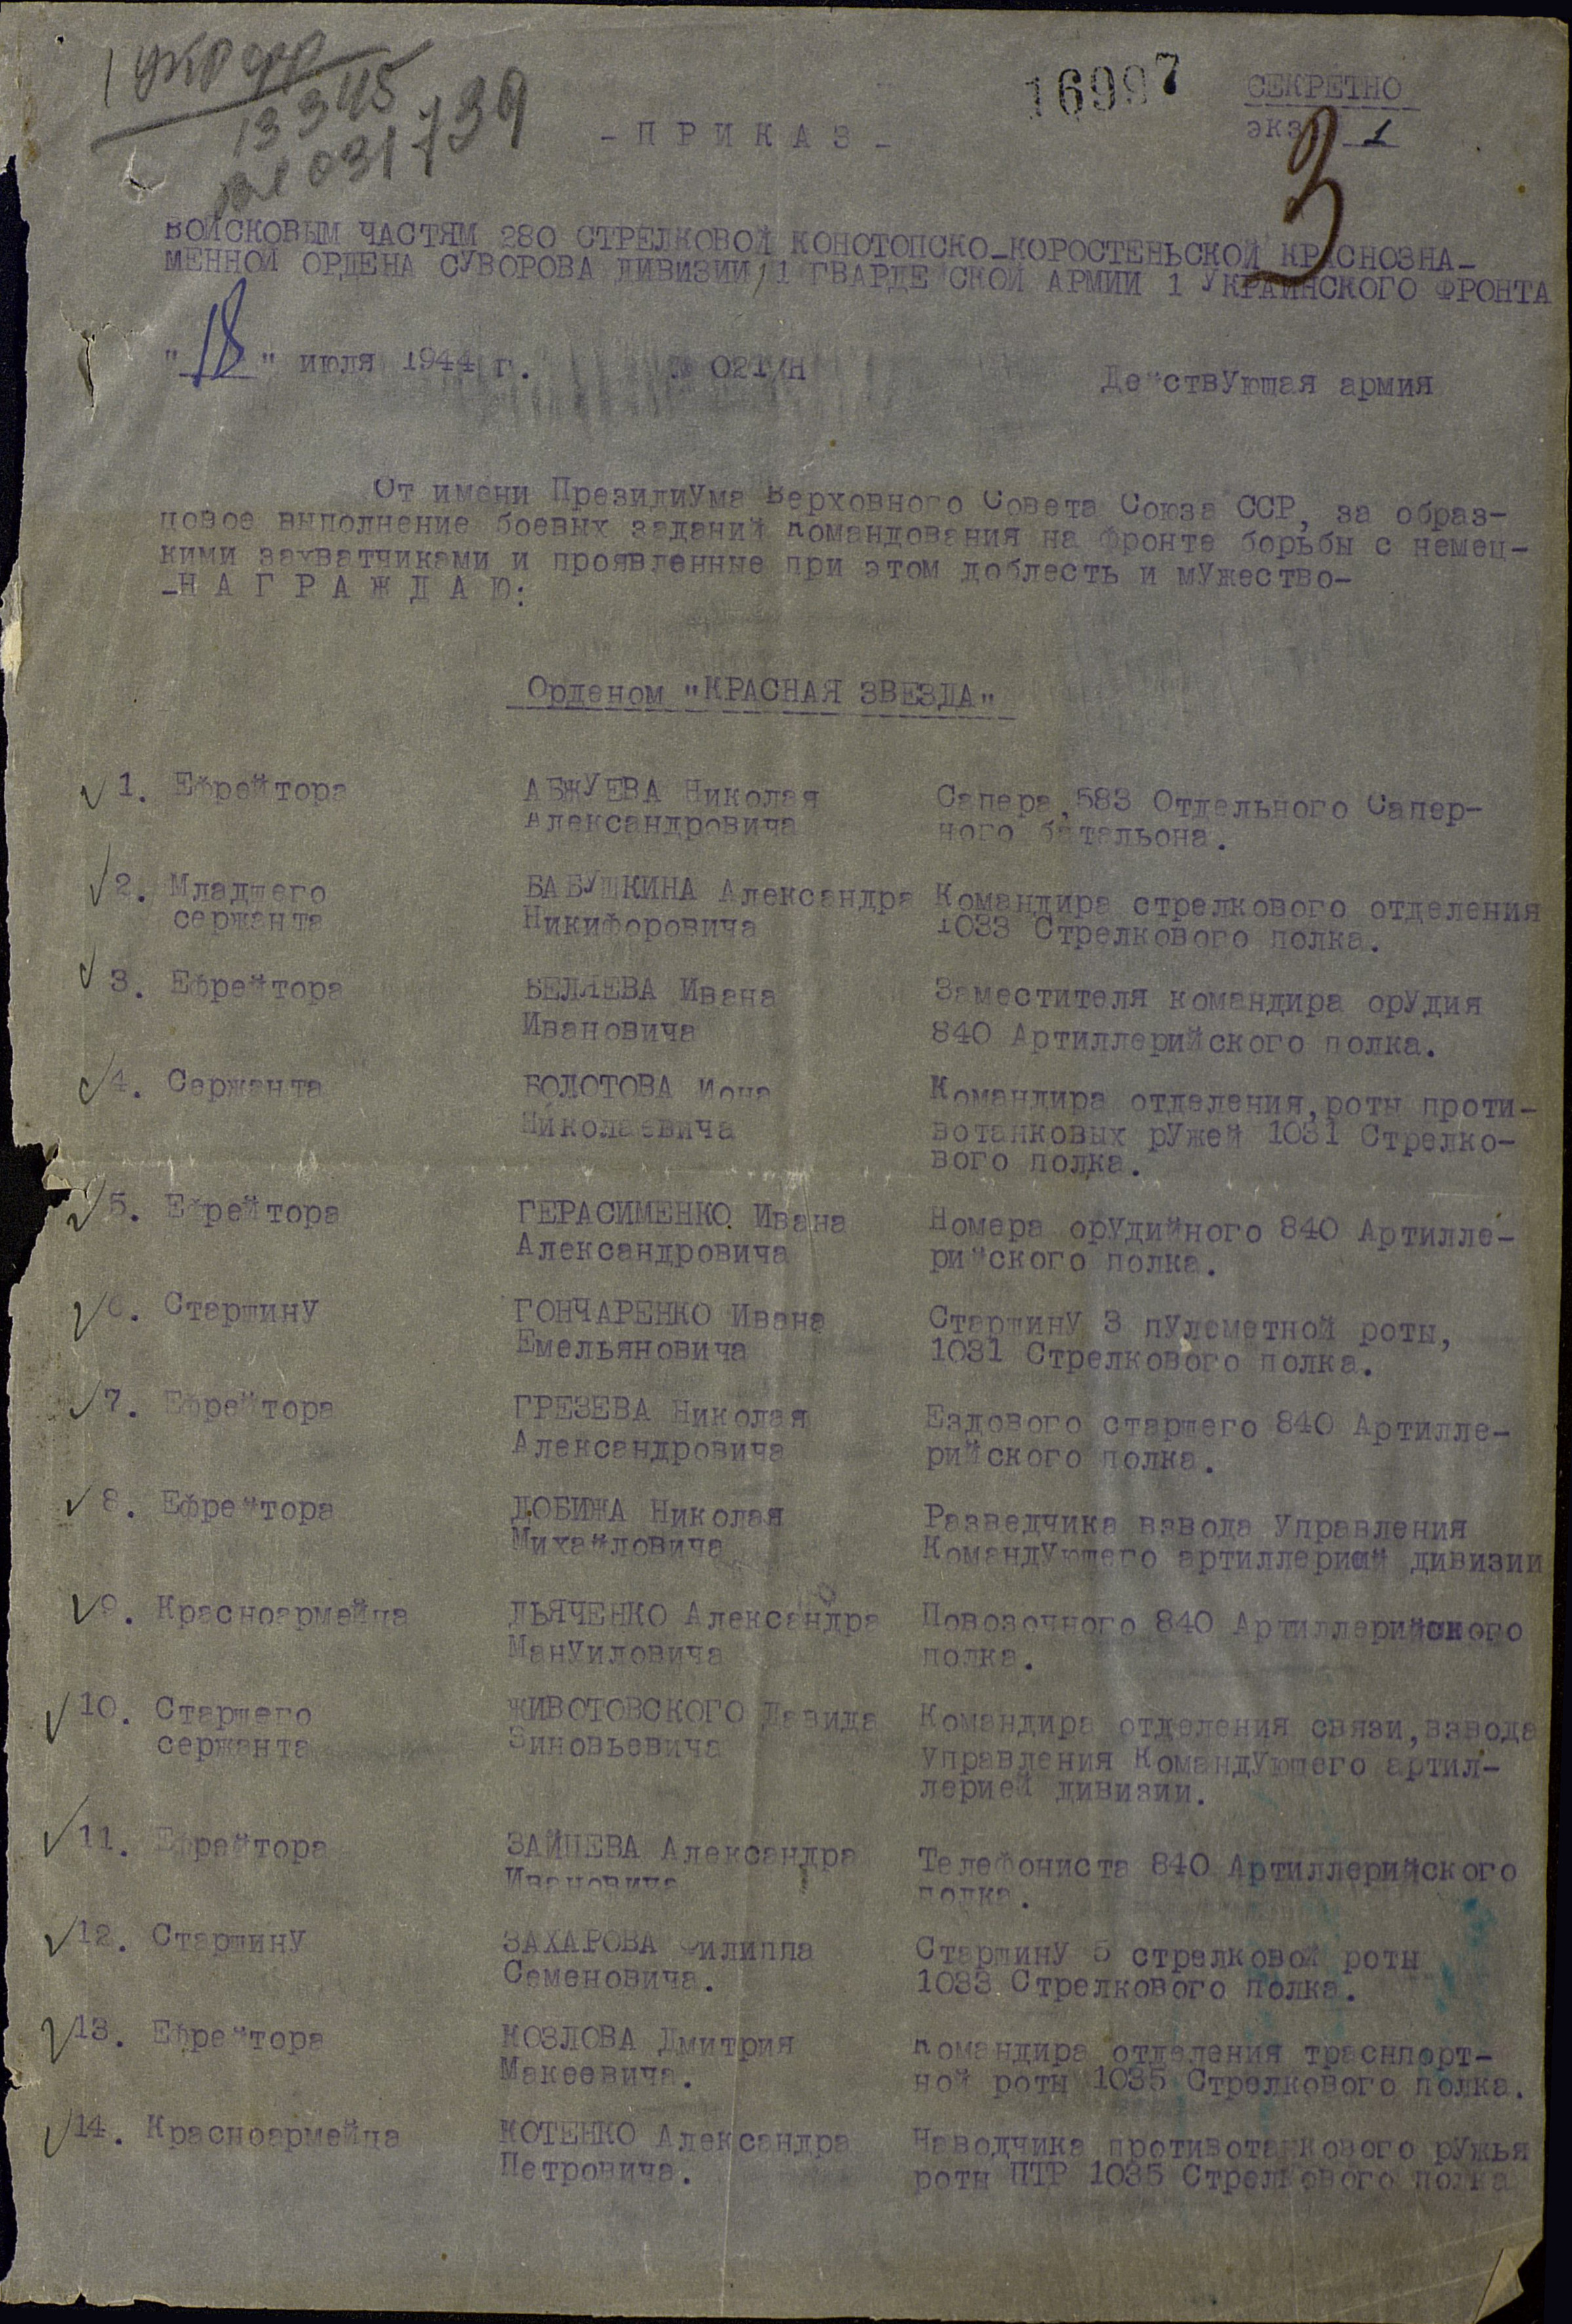 1 Укр фр
13345
031739
16997
СЕКРЕТНО
экз. 1
3
- П Р И К А З -
ВОЙСКОВЫМ ЧАСТЯМ 280 СТРЕЛКОВОЙ КОНОТОПСКО-КОРОСТЕНЬСКОЙ КРАСНОЗНА-
МЕННОЙ ОРДЕНА СУВОРОВА ДИВИЗИИ, 1 ГВАРДЕЙСКОЙ АРМИИ 1 УКРАИНСКОГО ФРОНТА
"18" июля 1944 г. № 021/Н Действующая армия
От имени Президиума Верховного Совета Союза ССР, за образ-
цовое выполнение боевых заданий Командования на фронте борьбы с немец-
кими захватчиками и проявленные при этом доблесть и мужество-
-Н А Г Р А Ж Д А Ю:
Орденом "КРАСНАЯ ЗВЕЗДА"
1. Ефрейтора АБЖУЕВА Николая Сапера, 583 Отдельного Сапер-
Александровича ного батальона.
2. Младшего БАБУШКИНА Александра Командира стрелкового отделения
сержанта Никифоровича 1033 Стрелкового полка.
3. Ефрейтора БЕЛЯЕВА Ивана Заместителя командира орудия
Ивановича 840 Артиллерийского полка.
4. Сержанта БОЛОТОВА Иона Командира отделения, роты проти-
Николаевича вотанковых ружей 1031 Стрелко-
вого полка.
5. Ефрейтора ГЕРАСИМЕНКО Ивана Номера орудийного 840 Артилле-
Александровича рийского полка.
6. Старшину ГОНЧАРЕНКО Ивана Старшину 3 пулеметной роты,
Емельяновича 1031 Стрелкового полка.
7. Ефрейтора ГРЕЗЕВА Николая Ездового старшего 840 Артилле-
Александровича рийского полка.
8. Ефрейтора ДОБИЖА Николая Разведчика взвода Управления
Михайловича Командующего артиллерией дивизии
9. Красноармейца ДЬЯЧЕНКО Александра Повозочного 840 Артиллерийского
Мануиловича полка.
10. Старшего ЖИВОТОВСКОГО Давида Командира отделения связи, взвода
сержанта Зиновьевича Управления Командующего артил-
лерией дивизии.
11. Ефрейтора ЗАЙЦЕВА Александра Телефониста 840 Артиллерийского
Ивановича полка.
12. Старшину ЗАХАРОВА Филиппа Старшину 5 стрелковой роты
Семеновича. 1033 Стрелкового полка.
13. Ефрейтора КОЗЛОВА Дмитрия Командира отделения траснпорт-
Макеевича. ной роты 1035 Стрелкового полка.
14. Красноармейца КОТЕНКО Александра Наводчика противотанкового ружья
Петровича. роты ПТР 1035 Стрелкового полка